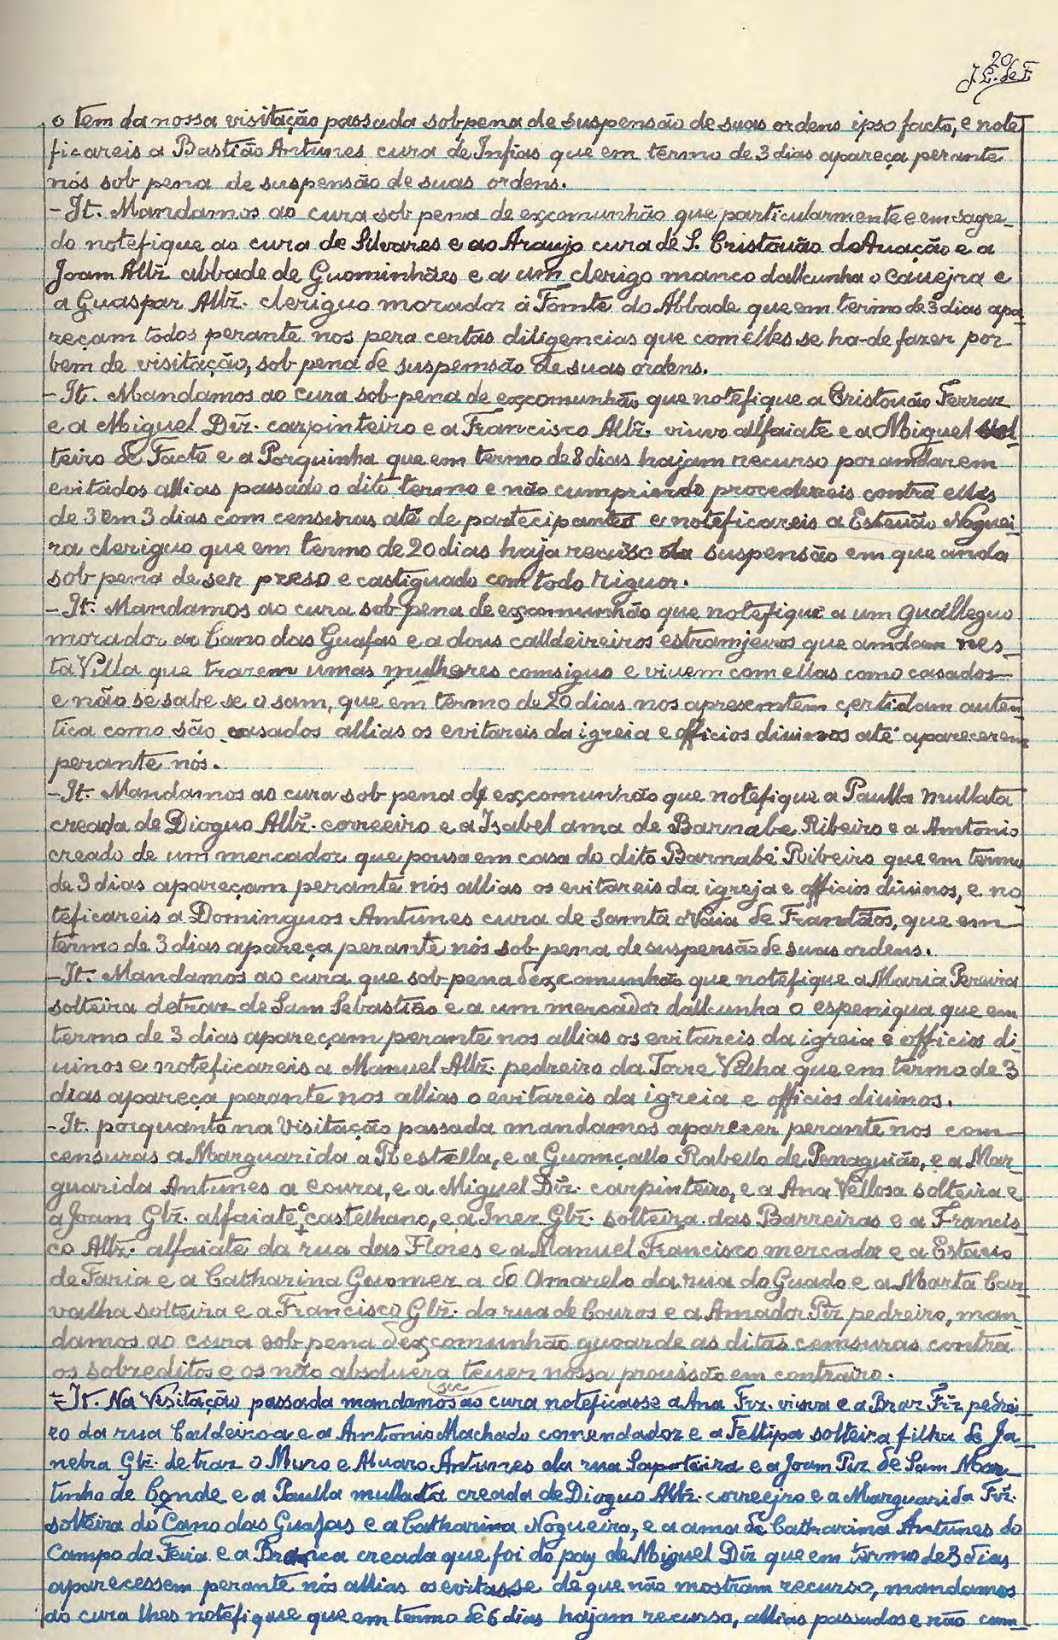 20
J. L. de F.
o tem da nossa visitação passada sob pena de suspensão de suas ordens ipso facto, e note
ficareis a Bastião Antunes cura de Infias que em termo de 3 dias apareça perante
nós sob pena de suspensão de suas ordens.
- It. Mandamos ao cura sob pena de exçomunhão que particularmente e em segre-
do notefique ao cura de Silvares e ao Araujo cura de S. Cristouão do Auação e a
Joam Allz abbade de Guominhães e a um clerigo manco dallcunha o Caueira e
a Guaspar Allz. cleriguo morador á Fomte do Abbade que em termo de 3 dias apa
reçam todos perante nos pera certas diligencias que com elles se ha-de fazer por
bem de visitação, sob pena de suspemsão de suas ordens.
- It. Mandamos ao cura sob pena de exçomunhão que notefique a Cristouão Ferraz
e a Miguel Diz. carpinteiro e a Francisco Allz. viuvo alfaiate e a Miguel sol
teiro de Facto e a Porquinha que em termo de 8 dias hajam recurso por amdarem
evitados allias passado o dito termo e não cumprindo procedereis contra elles
de 3 em 3 dias com censuras até de partecipantes e noteficareis a Esteuão Noguei
ra cleriguo que em termo de 20 dias haja recurso da suspensão em que anda
sob pena de ser preso e castiguado com todo riguor.
- It. Mandamos ao cura sob pena de exçomunhão que notefique a um Guallleguo
morador ao Cano das Guafas e a dous calldeireiros estramjeiros que amdam nes-
ta Villa que trazem umas mulheres comsiguo e vivem com ellas como casados
e não se sabe se o sam, que em termo de 20 dias nos apresemtem çertidam auten
tica como são casados allias os evitareis da igreia e officios diuinos até aparecerem
perante nós.
- It. Mandamos ao cura sob pena de exçomunhão que notefique a Paulla mullata
creada de Dioguo Allz. correeiro e a Isabel ama de Barnabe Ribeiro e a Amtonio
creado de um mercador que pousa em casa do dito Barnabé Ribeiro que em termo
de 3 dias apareçam perante nós allias os evitareis da igreja e officios diuinos, e no
teficareis a Dominguos Amtunes cura de Samta Ovaia de Framtãos, que em
termo de 3 dias apareça perante nós sob pena de suspensão de suas ordens.
- It. Mandamos ao cura que sob pena dexçomunhão que notefique a Maria Pereira
solteira detraz de Sam Sebastião e a um mercador dallcunha o espenigua que em
termo de 3 dias apareçam perante nos allias os evitareis da igreia e officios di-
uinos e noteficareis a Manuel Allz. pedreiro da Torre Velha que em termo de 3
dias apareça perante nos allias o evitareis da igreia e officios diuinos.
- It. porquanto na Visitação passada mandamos aparecer perante nos com
censuras a Marguarida a Restella, e a Guomçallo Rabello de Penaguião, e a Mar-
guarida Antunes a coura, e a Miguel Diz. carpinteiro, e a Ana Vellosa solteira e
a Joam Glz. alfaiate castelhano, e a Inez Glz. solteira das Barreiras e a Francis
co Allz. alfaiate da rua das Flores e a Manuel Francisco mercador e a Estacio
de Faria e a Catharina Guomez a do Amarelo da rua do Guado e a Marta Car
valha solteira e a Francisco Glz. da rua de Couros e a Amador Piz pedreiro, man-
damos ao cura sob pena dexçomunhão guoarde as ditas cemsuras contra
os sobreditos e os não absoluera teuer nossa prouissão em contrairo.
- It. Na Visitação passada mandamos (sic) ao cura noteficasse a Ana Frz. viuva e a Braz Frz pedrei
ro da rua Caldeiroa e a Antonio Machado comendador e a Fellipa solteira filha de Ja-
nebra Glz. detraz o Muro e Aluaro Antunes da rua Sapateira e a Joam Piz de Sam Mar-
tinho de Conde e a Paulla mullata creada de Dioguo Allz. correeiro e a Marguarida Frz.
solteira do Cano das Guafas e a Catharina Nogueira, e a ama de Catharina Antunes do
Campo da Feria e a Branca creada que foi do pay de Miguel Diz que em termo de 3 dias
aparecessem perante nós allias os evitasse de que não mostram recurso, mandamos
ao cura lhes notefique que em termo de 6 dias hajam recurso, allias passados e não cum-